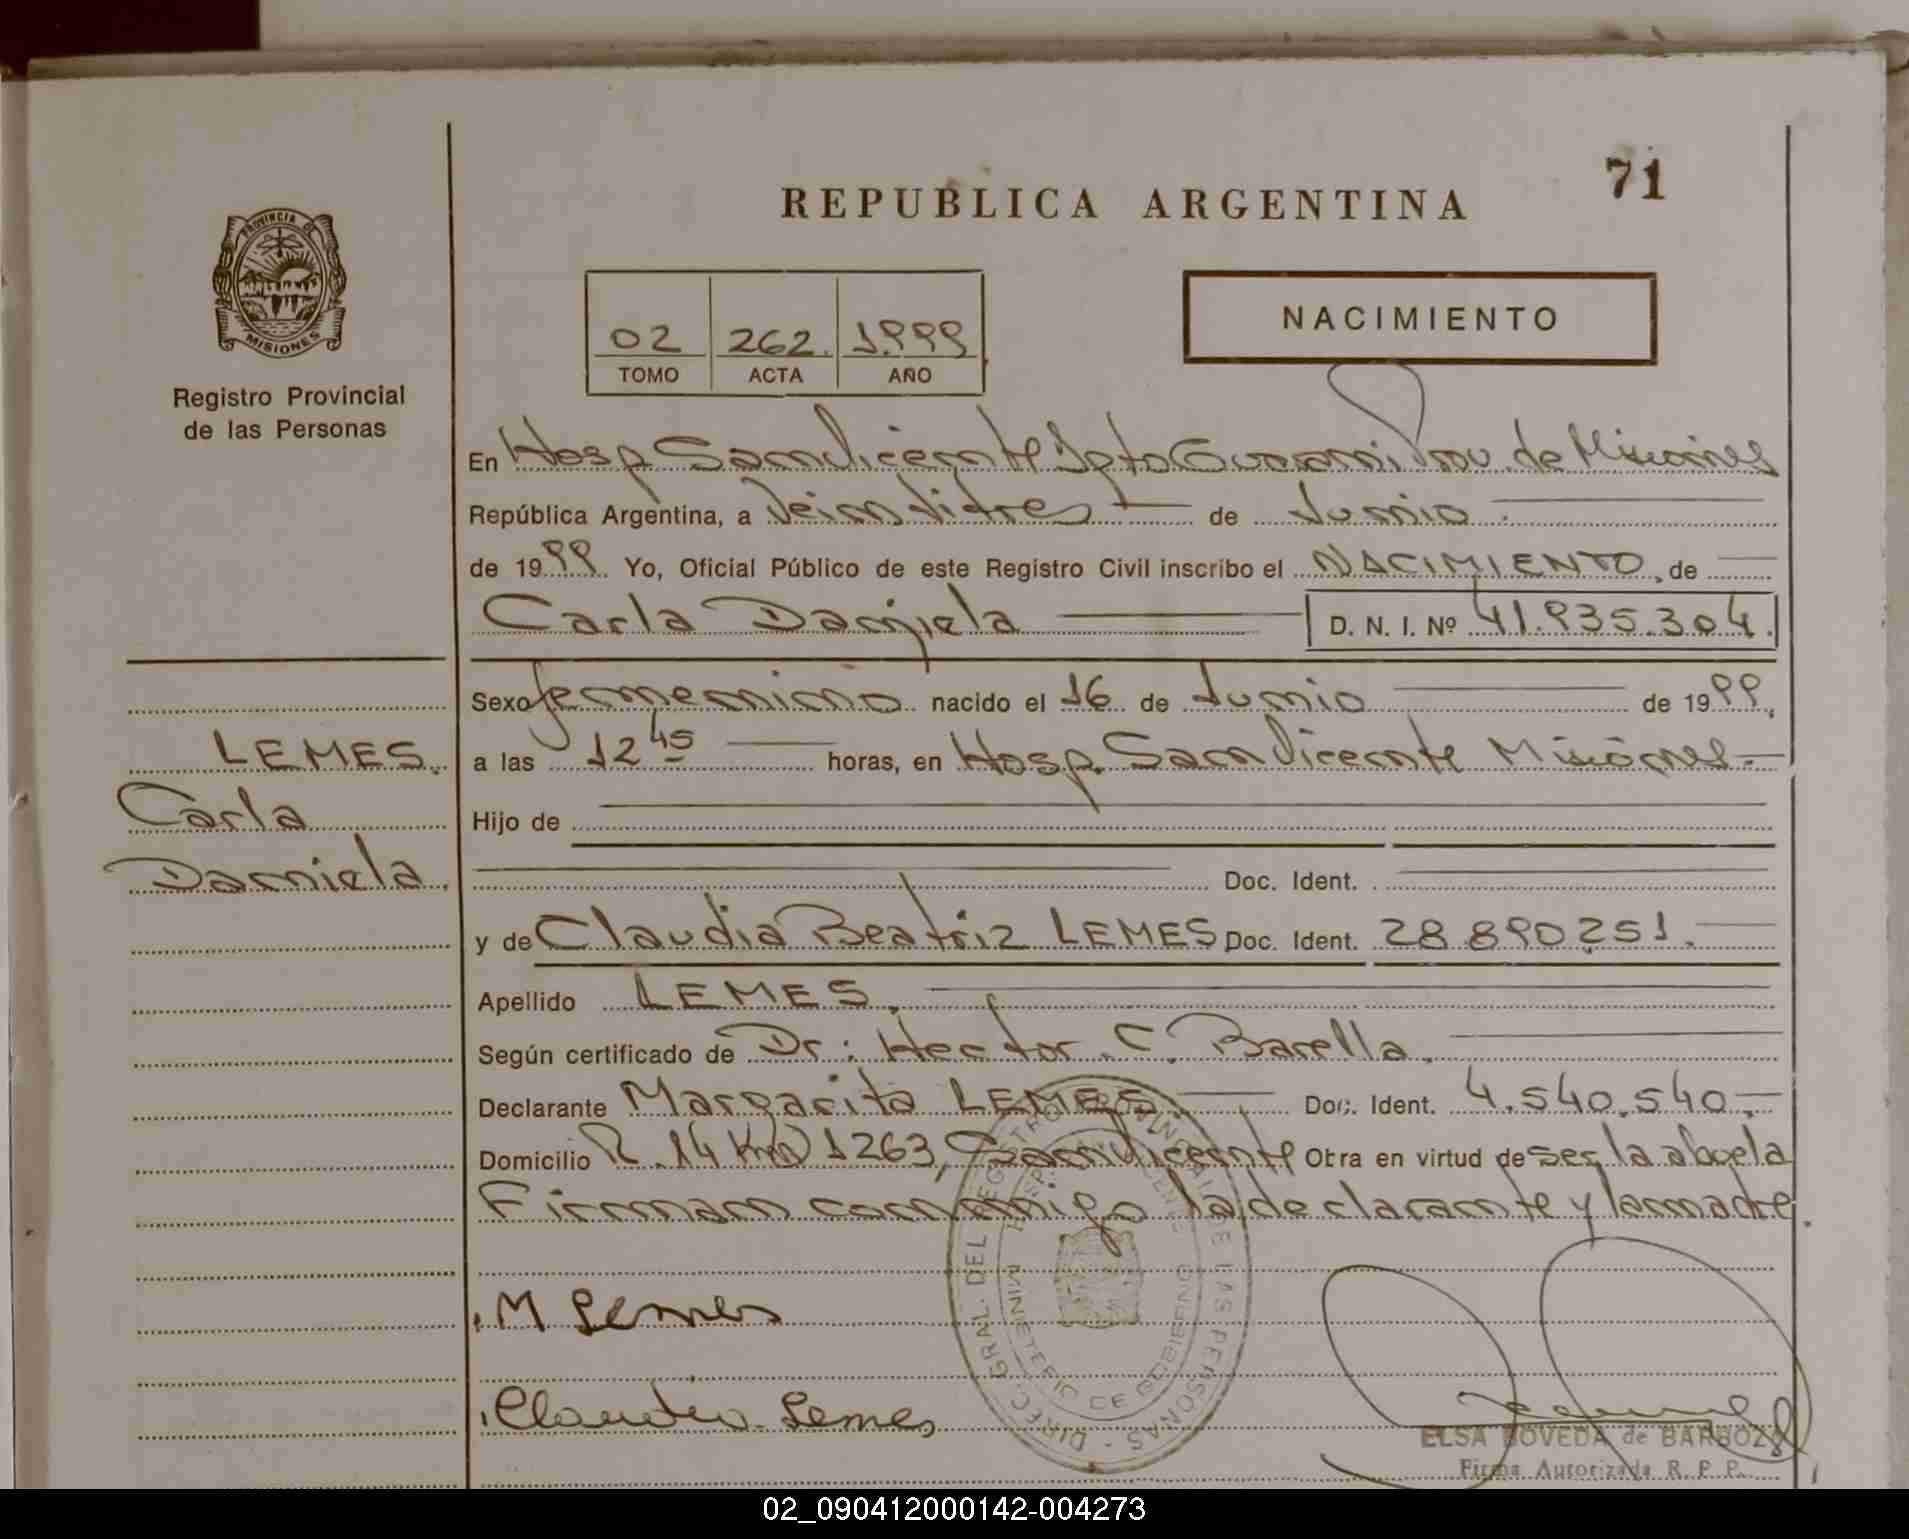 71
REPUBLICA ARGENTINA
PROVINCIA DE
MISIONES
Registro Provincial
de las Personas
02 262. 1.999
TOMO ACTA AÑO
NACIMIENTO
En Hosp San Vicente Dpto Guarani Prov. de Misiones
República Argentina, a Veintitres de Junio
de 1999 Yo, Oficial Público de este Registro Civil inscribo el NACIMIENTO, de
Carla Daniela D. N. I. Nº 41.935.304.
Sexo femenino nacido el 16 de Junio de 1999,
LEMES.
a las 12 45 horas, en Hosp. San Vicente Misiones
Carla
Hijo de
Daniela.
Doc. Ident.
y de Claudia Beatriz LEMES Doc. Ident. 28.890.251.
Apellido LEMES.
Según certificado de Dr: Hector. C. Barella.
Declarante Margarita LEMES. Doc. Ident. 4.540.540.
Domicilio R. 14 Km 1263, San Vicente Otra en virtud de ser la abuela
Firman conmigo la declarante y la madre.
M Lemes
Claudia Lemes
DIREC. GRAL. DEL REGISTRO PROVINCIAL DE LAS PERSONAS
MINISTERIO DE GOBIERNO
ELSA BOVEDA de BARBOZA
Firma Autorizada R. P. P.
02_090412000142-004273